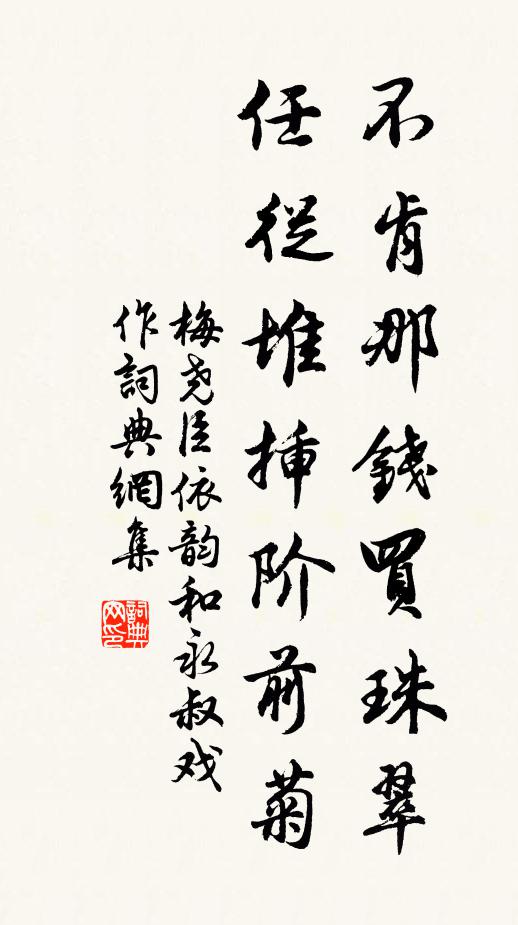 不肯那錢買珠翠
任從堆揷阶前菊
梅尧臣依韵和永叔戏
作詞典網集
詞典网印